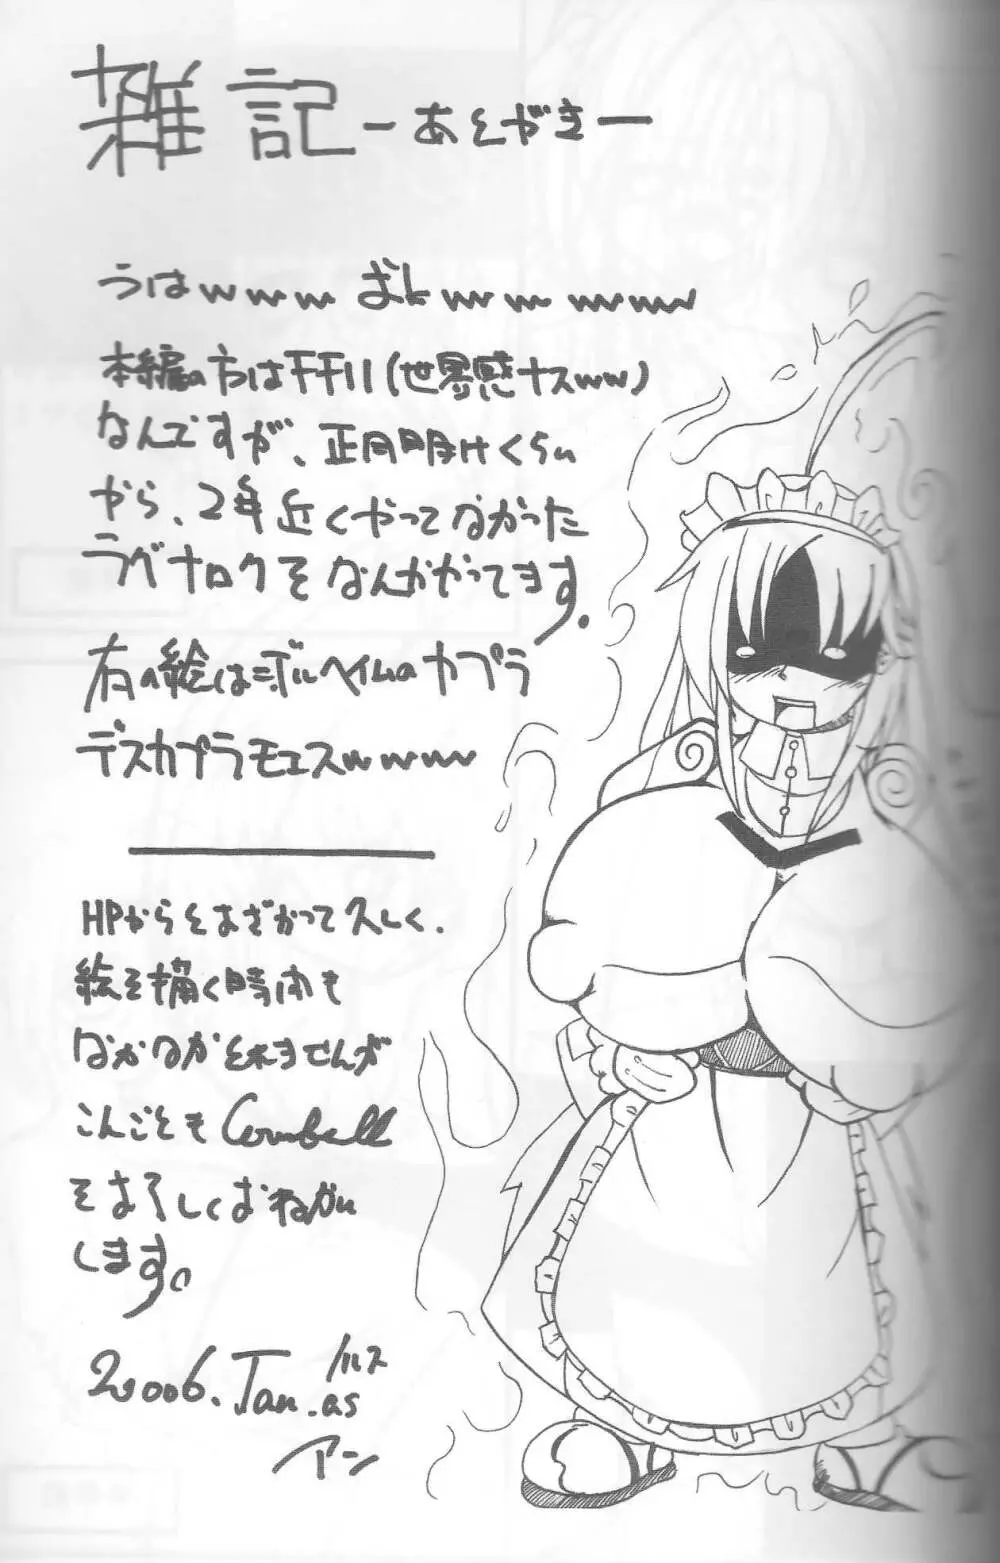 雑記 ーあとがきー
うはwww おkwwwwww
本編の方はFF11(世界感ナスww)
なんですが、正月明けくらい
から、2年近くやってなかった
ラグナロクをなんかやってます。
右の絵はニヴルヘイムのカプラ
デスカプラモユスwwww
HPからとおざかって久しく、
絵を描く時間も
なかなかとれませんが
こんごとも
をよろしくおねがい
します。
2006.Jan.
アン